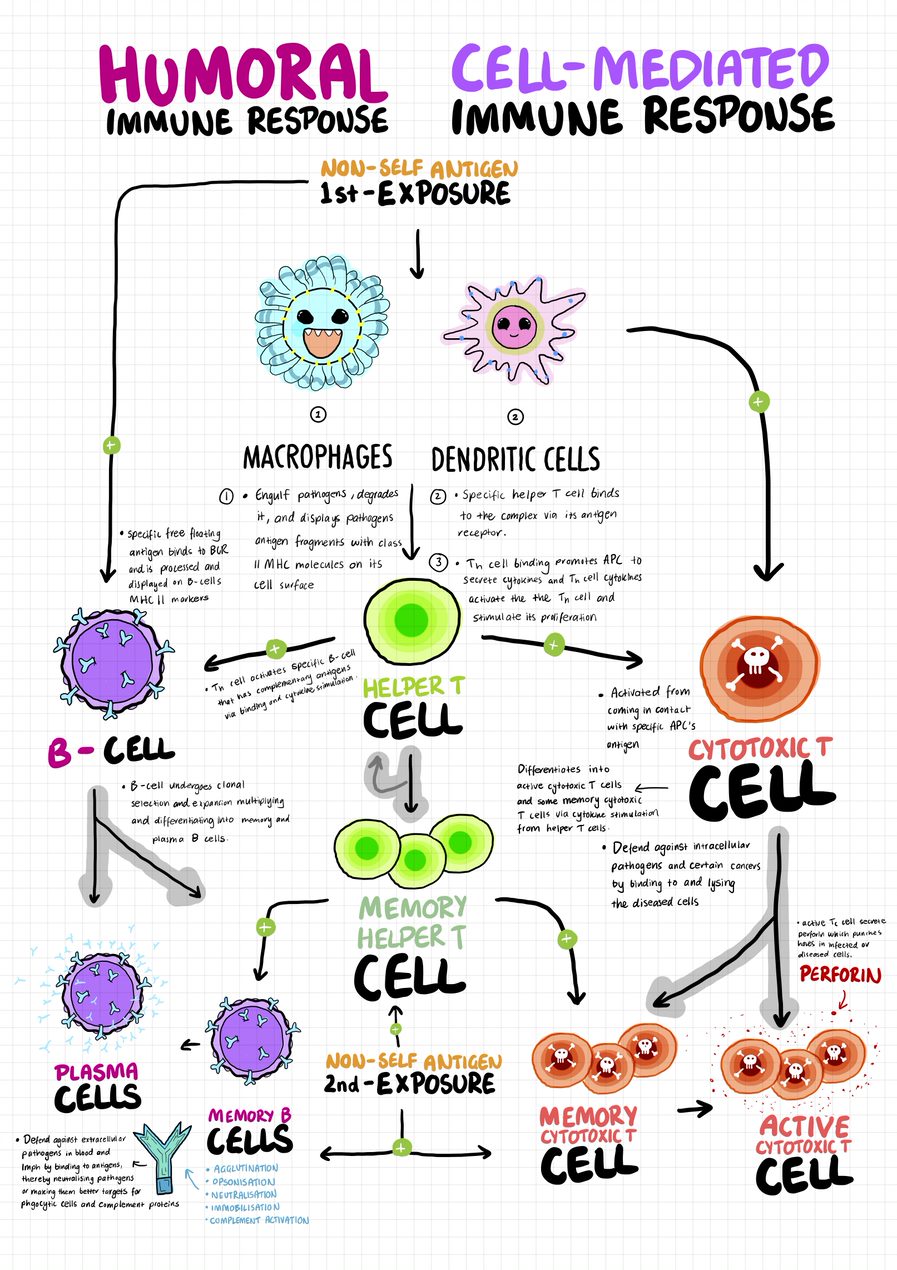 HUMORAL
IMMUNE RESPONSE
CELL-MEDIATED
IMMUNE RESPONSE
NON-SELF ANTIGEN
1st-EXPOSURE
+
+
1
2
MACROPHAGES
DENDRITIC CELLS
1 • Engulf pathogens, degrades
it, and displays pathogens
antigen fragments with class
II MHC molecules on its
cell surface
2 • Specific helper T cell binds
to the complex via its antigen
receptor.
3 • TH cell binding promotes APC to
secrete cytokines and TH cell cytokines
activate the the TH cell and
stimulate its proliferation
• specific free floating
antigen binds to BCR
and is processed and
displayed on B-cells
MHC II markers
+
+
• TH cell activates specific B-cell
that has complementary antigens
via binding and cytokine stimulation.
HELPER T
CELL
B-CELL
• Activated from
coming in contact
with specific APC's
antigen
CYTOTOXIC T
CELL
• B-cell undergoes clonal
selection and expansion multiplying
and differentiating into memory and
plasma B cells.
Differentiates into
active cytotoxic T cells
and some memory cytotoxic
T cells via cytokine stimulation
from helper T cells.
• Defend against intracellular
pathogens and certain cancers
by binding to and lysing
the diseased cells
MEMORY
HELPER T
CELL
+
+
• active Tc cell secrete
perforin which punches
holes in infected or
diseased cells.
PERFORIN
+
NON-SELF ANTIGEN
2nd-EXPOSURE
+
PLASMA
CELLS
MEMORY B
CELLS
MEMORY
CYTOTOXIC T
CELL
ACTIVE
CYTOTOXIC T
CELL
• Defend against extracellular
pathogens in blood and
lmph by binding to antigens,
thereby neutralising pathogens
or making them better targets for
phgocytic cells and complement proteins
• AGGLUTINATION
• OPSONISATION
• NEUTRALISATION
• IMMOBILISATION
• COMPLEMENT ACTIVATION